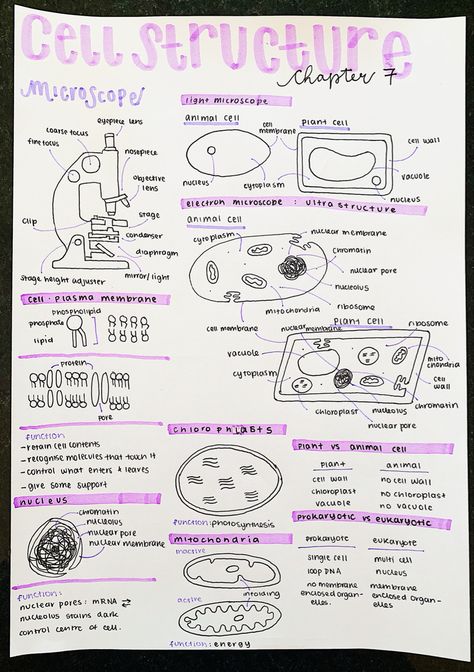 cell structure
chapter 7
microscope
eyepiece lens
coarse focus
fine focus
nosepiece
objective lens
clip
stage
condenser
diaphragm
mirror/light
stage height adjuster
light microscope
animal cell
cell membrane
plant cell
cell wall
vacuole
nucleus
cytoplasm
nucleus
electron microscope : ultrastructure
animal cell
cytoplasm
nuclear membrane
chromatin
nuclear pore
nucleolus
ribosome
mitochondria
cell membrane
plant cell
nuclear membrane
ribosome
vacuole
cytoplasm
mitochondria
cell wall
chromatin
chloroplast
nucleolus
nuclear pore
cell · plasma membrane
phospholipid
phosphate
lipid
protein
pore
function:
- retain cell contents
- recognise molecules that touch it
- control what enters & leaves
- give some support
nucleus
chromatin
nucleolus
nuclear pore
nuclear membrane
function:
nuclear pores: mRNA ⇄
nucleolus stains dark
control centre of cell.
chloroplasts
function: photosynthesis
mitochondria
inactive
infolding
active
function: energy
plant vs animal cell
plant animal
cell wall no cell wall
chloroplast no chloroplast
vacuole no vacuole
prokaryotic vs eukaryotic
prokaryote eukaryote
single cell multi cell
loop DNA nucleus
no membrane membrane
enclosed organ- enclosed organ-
elles. elles